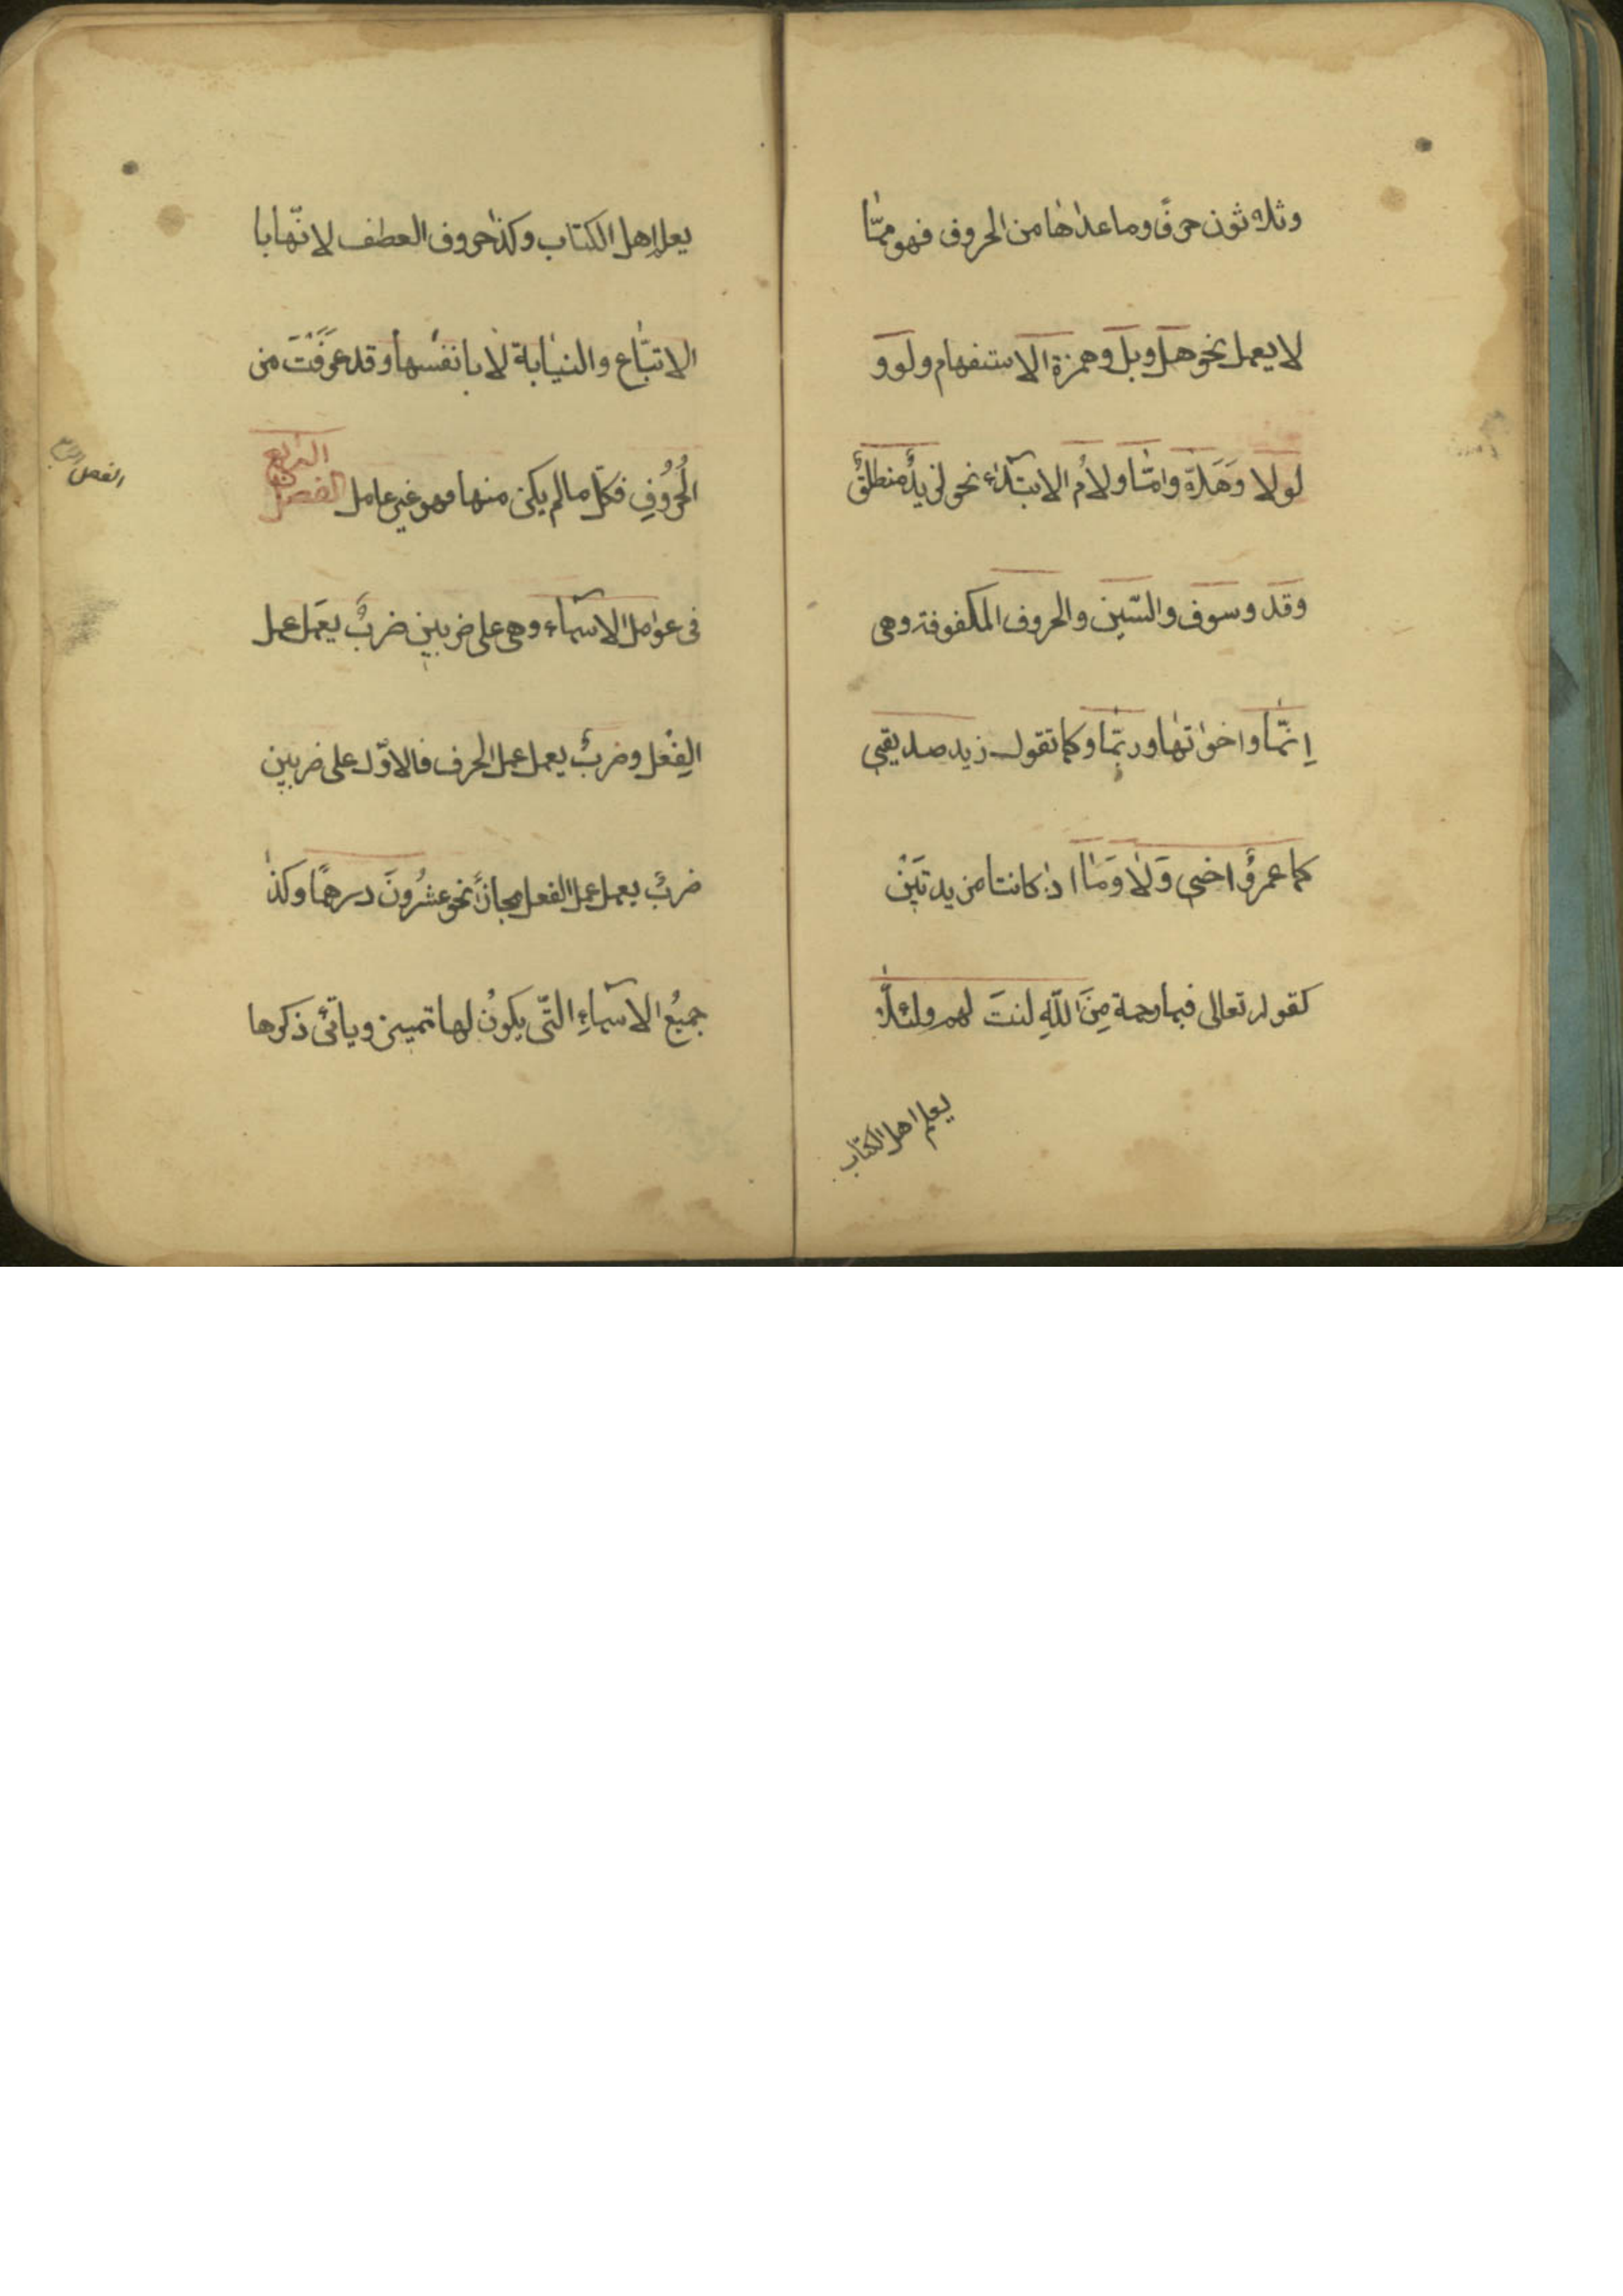 وثلاثون حرفًا وما عداها من الحروف فهو ممّا
لا يعمل نحو هل وبل وهمزة الاستفهام ولو و
لولا وَهَلّا وامّا ولامُ الابتداء نحو لزيدٌ منطلقٌ
وقد وسوف والسّين والحروف المكفوفة وهى
اِنّما واخواتها وربّما وكما تقول زيد صديقى
كما عمرٌو اخى وَلَا وَمَا اذا كانتا مزيدتَيْن
كقوله تعالى فبما رحمة مِنَ اللّهِ لنتَ لهم ولئلّا
يعلم اهل الكتاب
يعلم اهل الكتاب وكذا حروف العطف لانّها با
الاتبّاع والنيابة لا بانفسها وقد عَرَفْتَ من
الحُرُوفِ فكلّ ما لم يكن منها فهو غير عامل الفصل الرابع
الفصل
فى عوامل الاسماء وهى على ضربين ضربٌ يعمَل عمل
الفِعْل وضربٌ يعمل عمل الحرف فالاوّل على ضربين
ضربٌ يعمل عمل الفعل مجازًا نحو عشرُونَ درهمًا وكذا
جميعُ الاسماءِ التّى يكونُ لها تمييز وياتى ذكرها